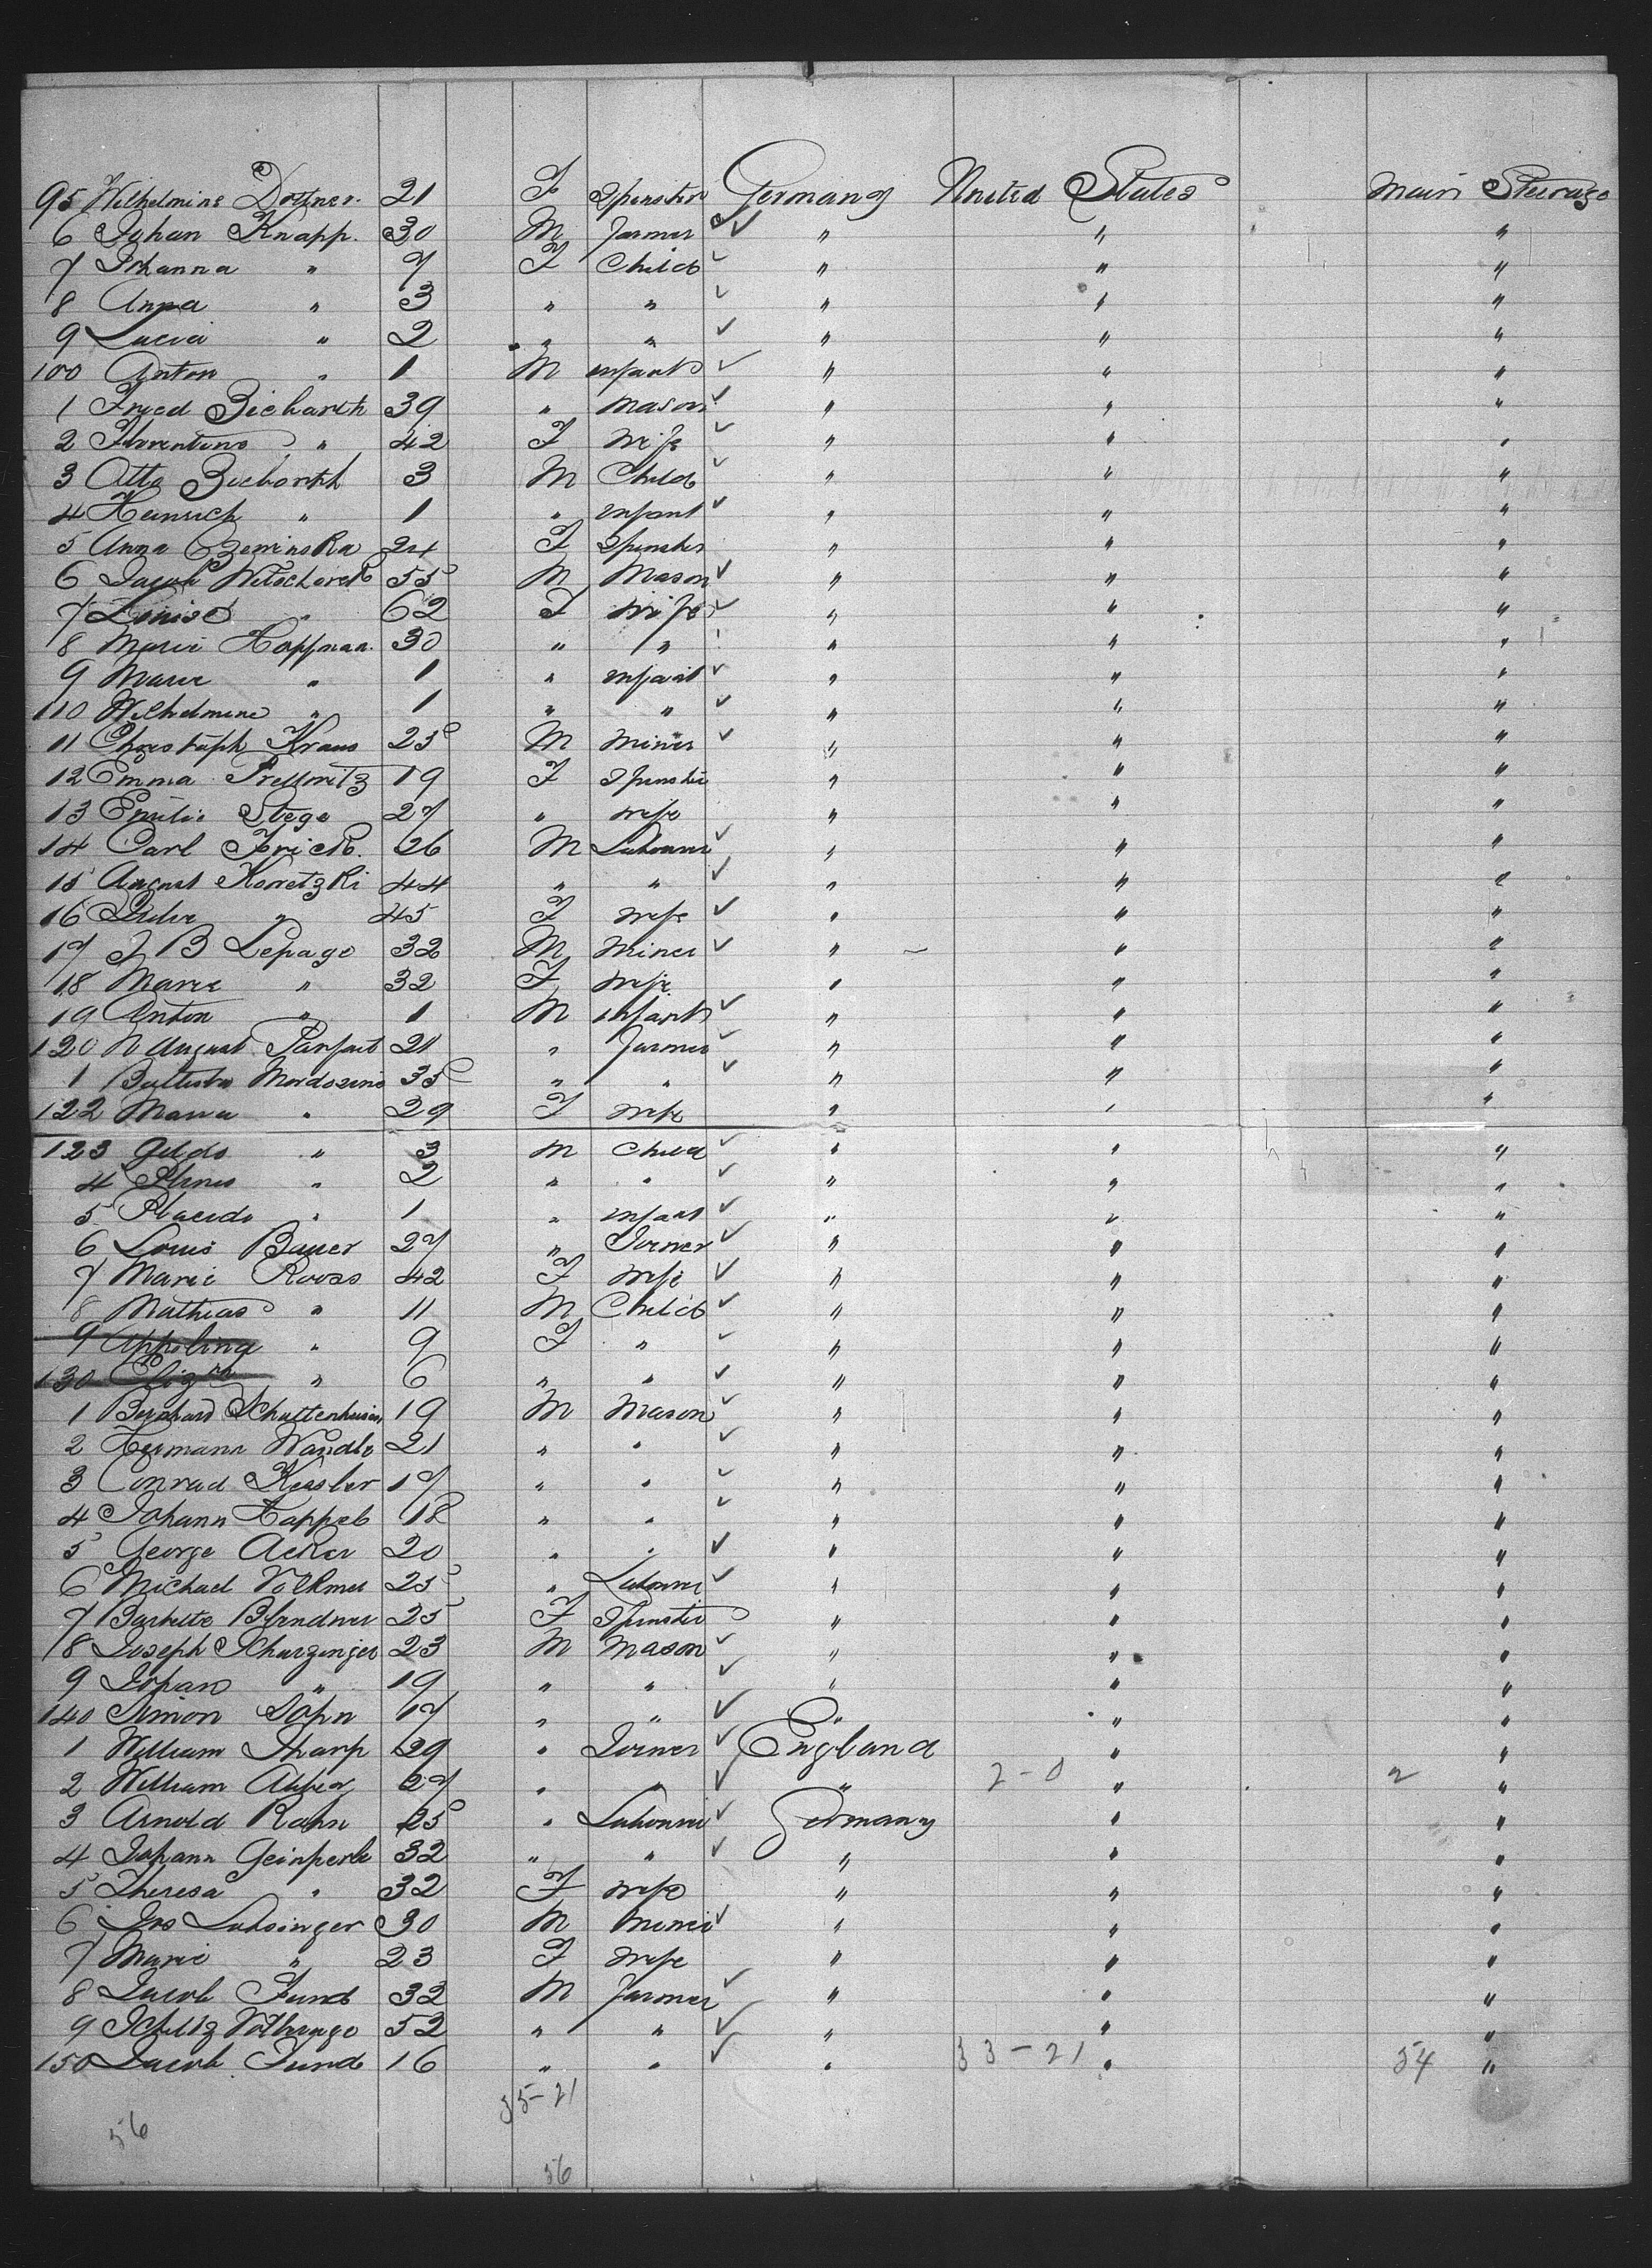 95 Wilhelmine Dortner. 21 F Spinster Germany United States Main Steerage
6 Johan Knapp. 30 M Farmer ✓ " " "
7 Johanna " 7 F Child ✓ " " "
8 Anna " 3 " " ✓ " " "
9 Lucia " 2 " " ✓ " " "
100 Anton " 1 M infant ✓ " " "
1 Fried Bicharth 39 " Mason ✓ " " "
2 Florentine " 42 F Wife ✓ " " "
3 Otto 3 M Child ✓ " " "
4 Heinrich " 1 " infant ✓ " " "
5 Anna Czeminska 24 F Spinster " " "
6 Jacob Witschorek 55 M Mason ✓ " " "
7 Louise " 62 F Wife ✓ " " "
8 Marie Hoffman. 30 " " " " "
9 Marie " 1 " infant ✓ " " "
110 Wilhelmine " 1 " " ✓ " " "
11 Christoph Kraus 25 M Miner ✓ " " "
12 Emma Prellwitz 19 F Spinster " " "
13 Emilie Stege 27 " Wife " " "
14 Carl Frick. 26 M Labourer ✓ " " "
15 August Korretzki 44 " " ✓ " " "
16 " 45 F Wife ✓ " " "
17 J B Lepage 32 M Miner ✓ " " "
18 Marie " 32 F Wife " " "
19 Anton " 1 M infant ✓ " " "
120 N August Parfait 21 " Farmer ✓ " " "
1 Battista 35 " " ✓ " " "
122 Maria " 29 F Wife " " "
123 Gildo " 3 M Child ✓ " " "
4 " 2 " " ✓ " " "
5 Placido " 1 " infant ✓ " " "
6 Louis Bauer 27 " Joiner ✓ " " "
7 Marie Rooss 42 F Wife ✓ " " "
8 Mathias " 11 M Child ✓ " " "
9 Appoling " 9 F " ✓ " " "
130 Elizth " 6 " " ✓ " " "
1 Bernhard 19 M Mason ✓ " " "
2 Hermann Wandle 21 " " ✓ " " "
3 Conrad Kessler 17 " " ✓ " " "
4 Johann Happel 18 " " ✓ " " "
5 George Acker 20 " " ✓ " " "
6 Michael Volkmer 25 " Labourer ✓ " " "
7 Barbette 25 F Spinster " " "
8 Joseph Schurzinger 23 M Mason ✓ " " "
9 Johan " 19 " " ✓ " " "
140 Simon Dohn 17 " " ✓ " " "
1 William Sharp 29 " Joiner ✓ England " "
2 William 27 " " ✓ " 2-0 " 2 "
3 Arnold Rahn 25 " Labourer ✓ Germany " "
4 Johann Geinperle 32 " " ✓ " " "
5 Theresa " 32 F Wife " " "
6 Jos Luksinger 30 M Miner ✓ " " "
7 Marie " 23 F Wife " " "
8 Jacob Fund 32 M Farmer ✓ " " "
9 52 " " ✓ " " "
150 Jacob Fund 16 " " ✓ " 33-21 " 54 "
35-21
56
56